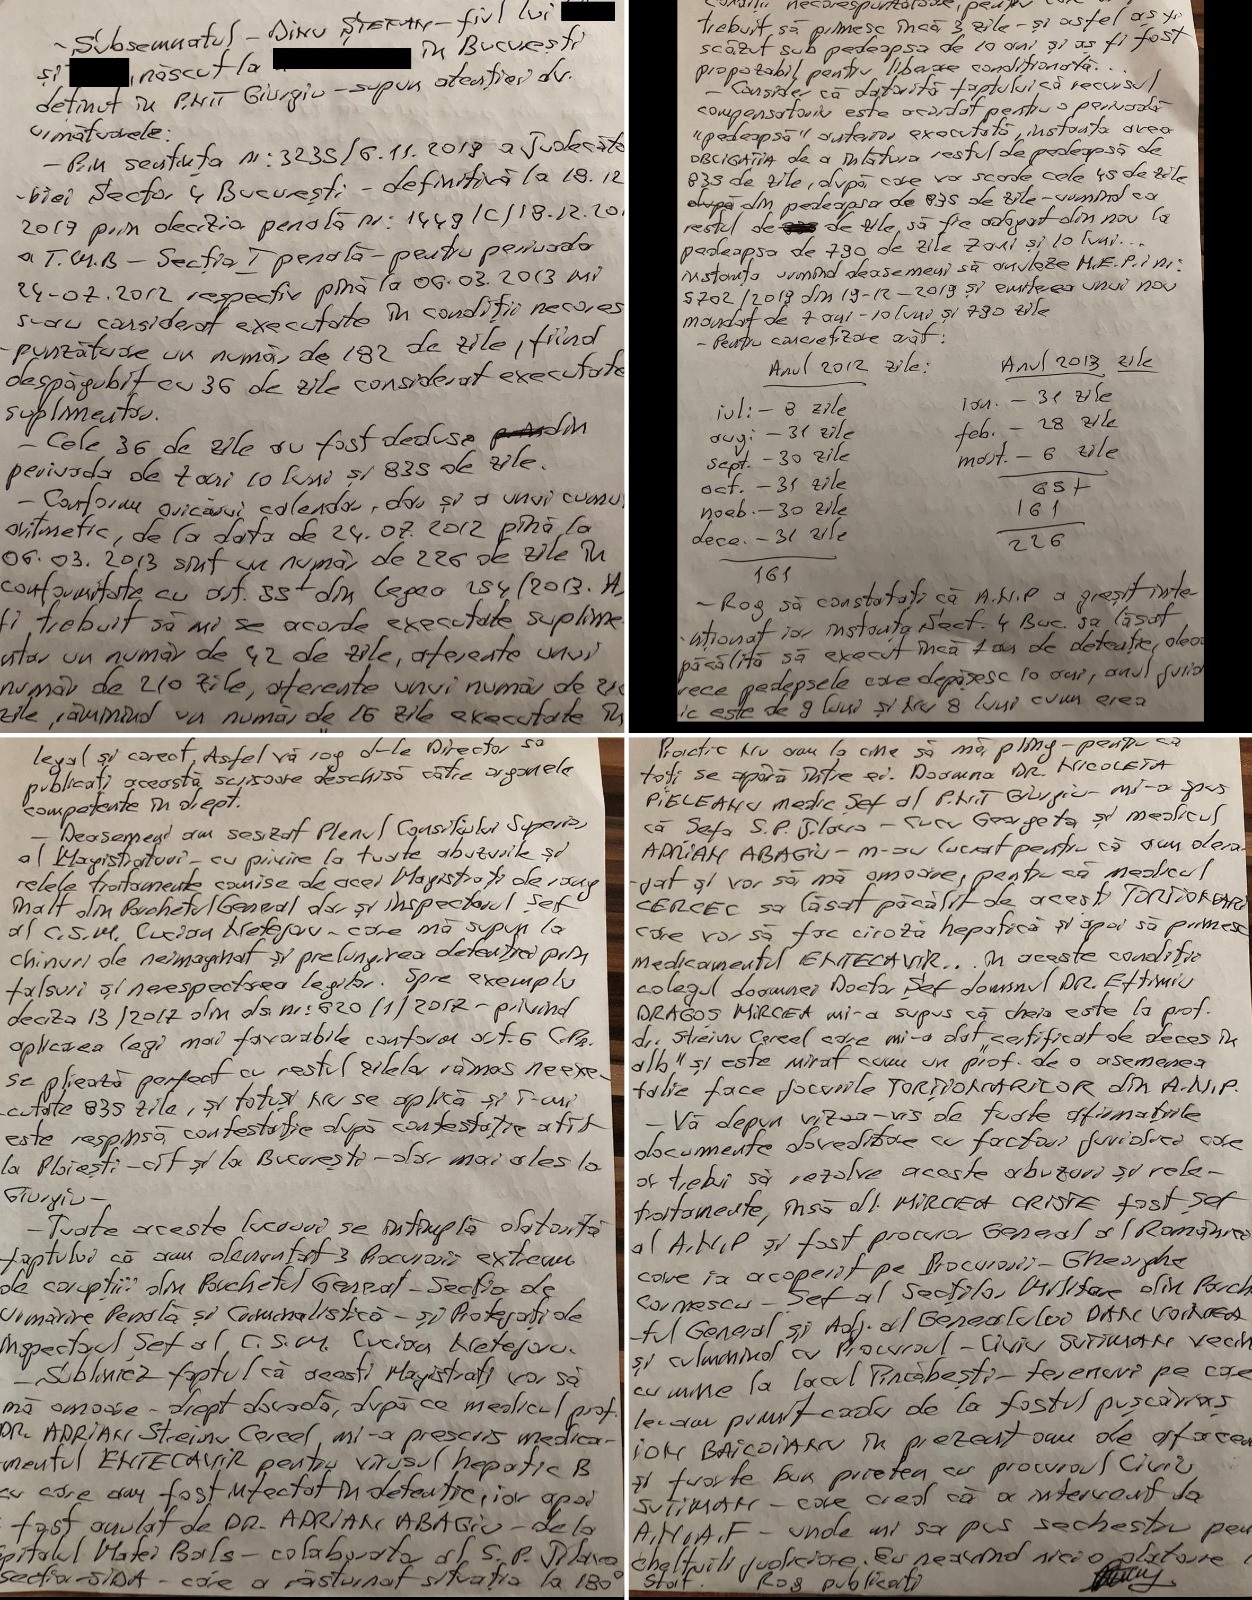 - Subsemnatul - Dinu ȘTEFAN - fiul lui
și născut la în București
deținut în P.NIT Giurgiu - supun atenției dv.
următoarele:
- Prin sentința nr: 3235/6.11.2019 a Judecăto
-riei Sector 4 București - definitivă la 18.12
2019 prin decizia penală nr: 1449/C/18.12.201
a T.M.B - Secția I penală - pentru perioada
24-07.2012 respectiv pînă la 06.03.2013 mi
s-au considerat executate în condiții necores
-punzătoare un număr de 182 de zile, fiind
despăgubit cu 36 de zile considerat executate
suplimentar.
- Cele 36 de zile au fost deduse din
perioada de 7 ani 10 luni și 835 de zile.
- Conform oricărui calendar, dar și a unui
aritmetic, de la data de 24.07.2012 pînă la
06.03.2013 sînt un număr de 226 de zile în
conformitate cu art. 55¹ din legea 254/2013. Ar
fi trebuit să mi se acorde executate suplime
ntar un număr de 42 de zile, aferente unui
număr de 210 zile, aferente unui număr de
zile, rămînînd un număr de 16 zile executate în
condiții necorespunzătoare, pentru care
trebuit, să primesc încă 3 zile - și astfel aș fi
scăzut sub pedeapsa de 10 ani și aș fi fost
propozabil pentru liberare condiționată...
- Consider că datorită faptului că recursul
compensatoriu este acordat pentru o perioadă
"pedeapsă" anterior executată, instanța avea
OBLIGAȚIA de a înlătura restul de pedeapsă de
835 de zile, după care va scade cele 45 de zile
din pedeapsa de 835 de zile - urmînd ca
restul de de zile, să fie adăugat din nou la
pedeapsa de 790 de zile 7 ani și 10 luni...
instanța urmînd deasemeni să anuleze M.E.P.I nr:
5702/2019 din 19-12-2019 și emiterea unui nou
mandat de 7 ani - 10 luni și 790 zile
- Pentru concretizare arăt:
Anul 2012 zile: Anul 2013 zile
iul: - 8 zile ian. - 31 zile
aug: - 31 zile feb. - 28 zile
sept. - 30 zile mart. - 6 zile
oct. - 31 zile 65+
noeb. - 30 zile 161
dece. - 31 zile 226
161
- Rog să constatați că A.N.P a greșit inte
-nționat iar instanța Sect. 4 Buc. sa lăsat
păcălită să execut încă 7 ani de detenție, deoa
rece pedepsele care depășesc 10 ani, anul jurid
ic este de 9 luni și nu 8 luni cum era
legal și corect, Astfel vă rog d-le Director sa
publicați această scrisoare deschisă către organele
competente în drept.
- Deasemeni am sesizat Plenul Consiliului Superior
al Magistraturi - cu privire la toate abuzurile și
relele tratamente comise de acei Magistrați de rang
înalt din Parchetul General dar și inspectorul șef
al C.S.M. Lucian Netejoru - care mă supun la
chinuri de neimaginat și prelungirea detenției prin
falsuri și nerespectarea legilor. Spre exemplu
decizia 13/2017 din ds nr: 620/1/2017 - privind
aplicarea legi mai favorabile conform art. 6 C.P.
se pliează perfect cu restul zilelor rămas neexe-
cutate 835 zile, și totuși nu se aplică și î-mi
este respinsă contestație după contestație atît
la Ploiești - cît și la București - dar mai ales la
Giurgiu -
- Toate aceste lucruri se întîmplă datorită
faptului că am denunțat 3 Procurori extrem
de corupți: din Parchetul General - Secția de
Urmărire Penală și Criminalistică - și Protejați de
Inspectorul Șef al C.S.M. Lucian Netejoru.
- Subliniez faptul că acești Magistrați vor să
mă omoare - drept dovadă, după ce medicul prof.
DR. ADRIAN Streinu Cercel, mi-a prescris medica-
mentul ENTECAVIR pentru virusul hepatic B
cu care am fost infectat în detenție, iar apoi
fost anulat de DR. ADRIAN ABAGIU - de la
spitalul Matei Bals - colaborator al S.P. Jilava
Secția-SIDA - care a răsturnat situația la 180°
Practic nu am la cine să mă plîng - pentru că
toți se apără între ei. Doamna DR. NICOLETA
PIELEANU medic Șef al P.NIT Giurgiu - mi-a spus
că Șefa S.P. Jilava - Cucu Georgeta și medicul
ADRIAN ABAGIU - m-au lucrat pentru că am dera-
-jat și vor să mă omoare, pentru că medicul
CERCEC sa lăsat păcălit de acești TORȚIONARI
care vor să fac ciroză hepatică și apoi să primesc
medicamentul ENTECAVIR... în aceste condiții
colegul doamnei Doctor Șef domnul DR. Eftimiu
DRAGOȘ MIRCEA mi-a supus că cheia este la prof.
dr. Streinu Cercel care mi-a dat "certificat de deces în
alb" și este mirat cum un prof. de o asemenea
talie face jocurile TORȚIONARILOR din A.N.P.
- Vă depun vizaa-vis de toate afirmațiile
documente doveditoare cu factori juridici care
ar trebui să rezolve aceste abuzuri și rele-
tratamente, însă dl. MIRCEA CRISTE fost Șef
al A.N.P și fost procuror General al României
care ia acoperit pe Procurorii - Gheorghe
Cornescu - Șef al Secțiilor Militare din Parch
-tul General și Adj. al Generalului DAN VOINEA
și culminînd cu Procurorul - Liviu SUTIMAN vecin
cu mine la lacul Tîncăbești - terenuri pe care
leau primit cadou de la fostul pușcăriaș
ION BAICOIANU în prezent om de afaceri
și foarte bun prieten cu procurorul Liviu
SUTIMAN - care cred că a intervenit la
A.N.A.F - unde mi sa pus sechestru pen
cheltuieli judiciare. Eu neavînd nici o datorie
Stat. Rog publicați